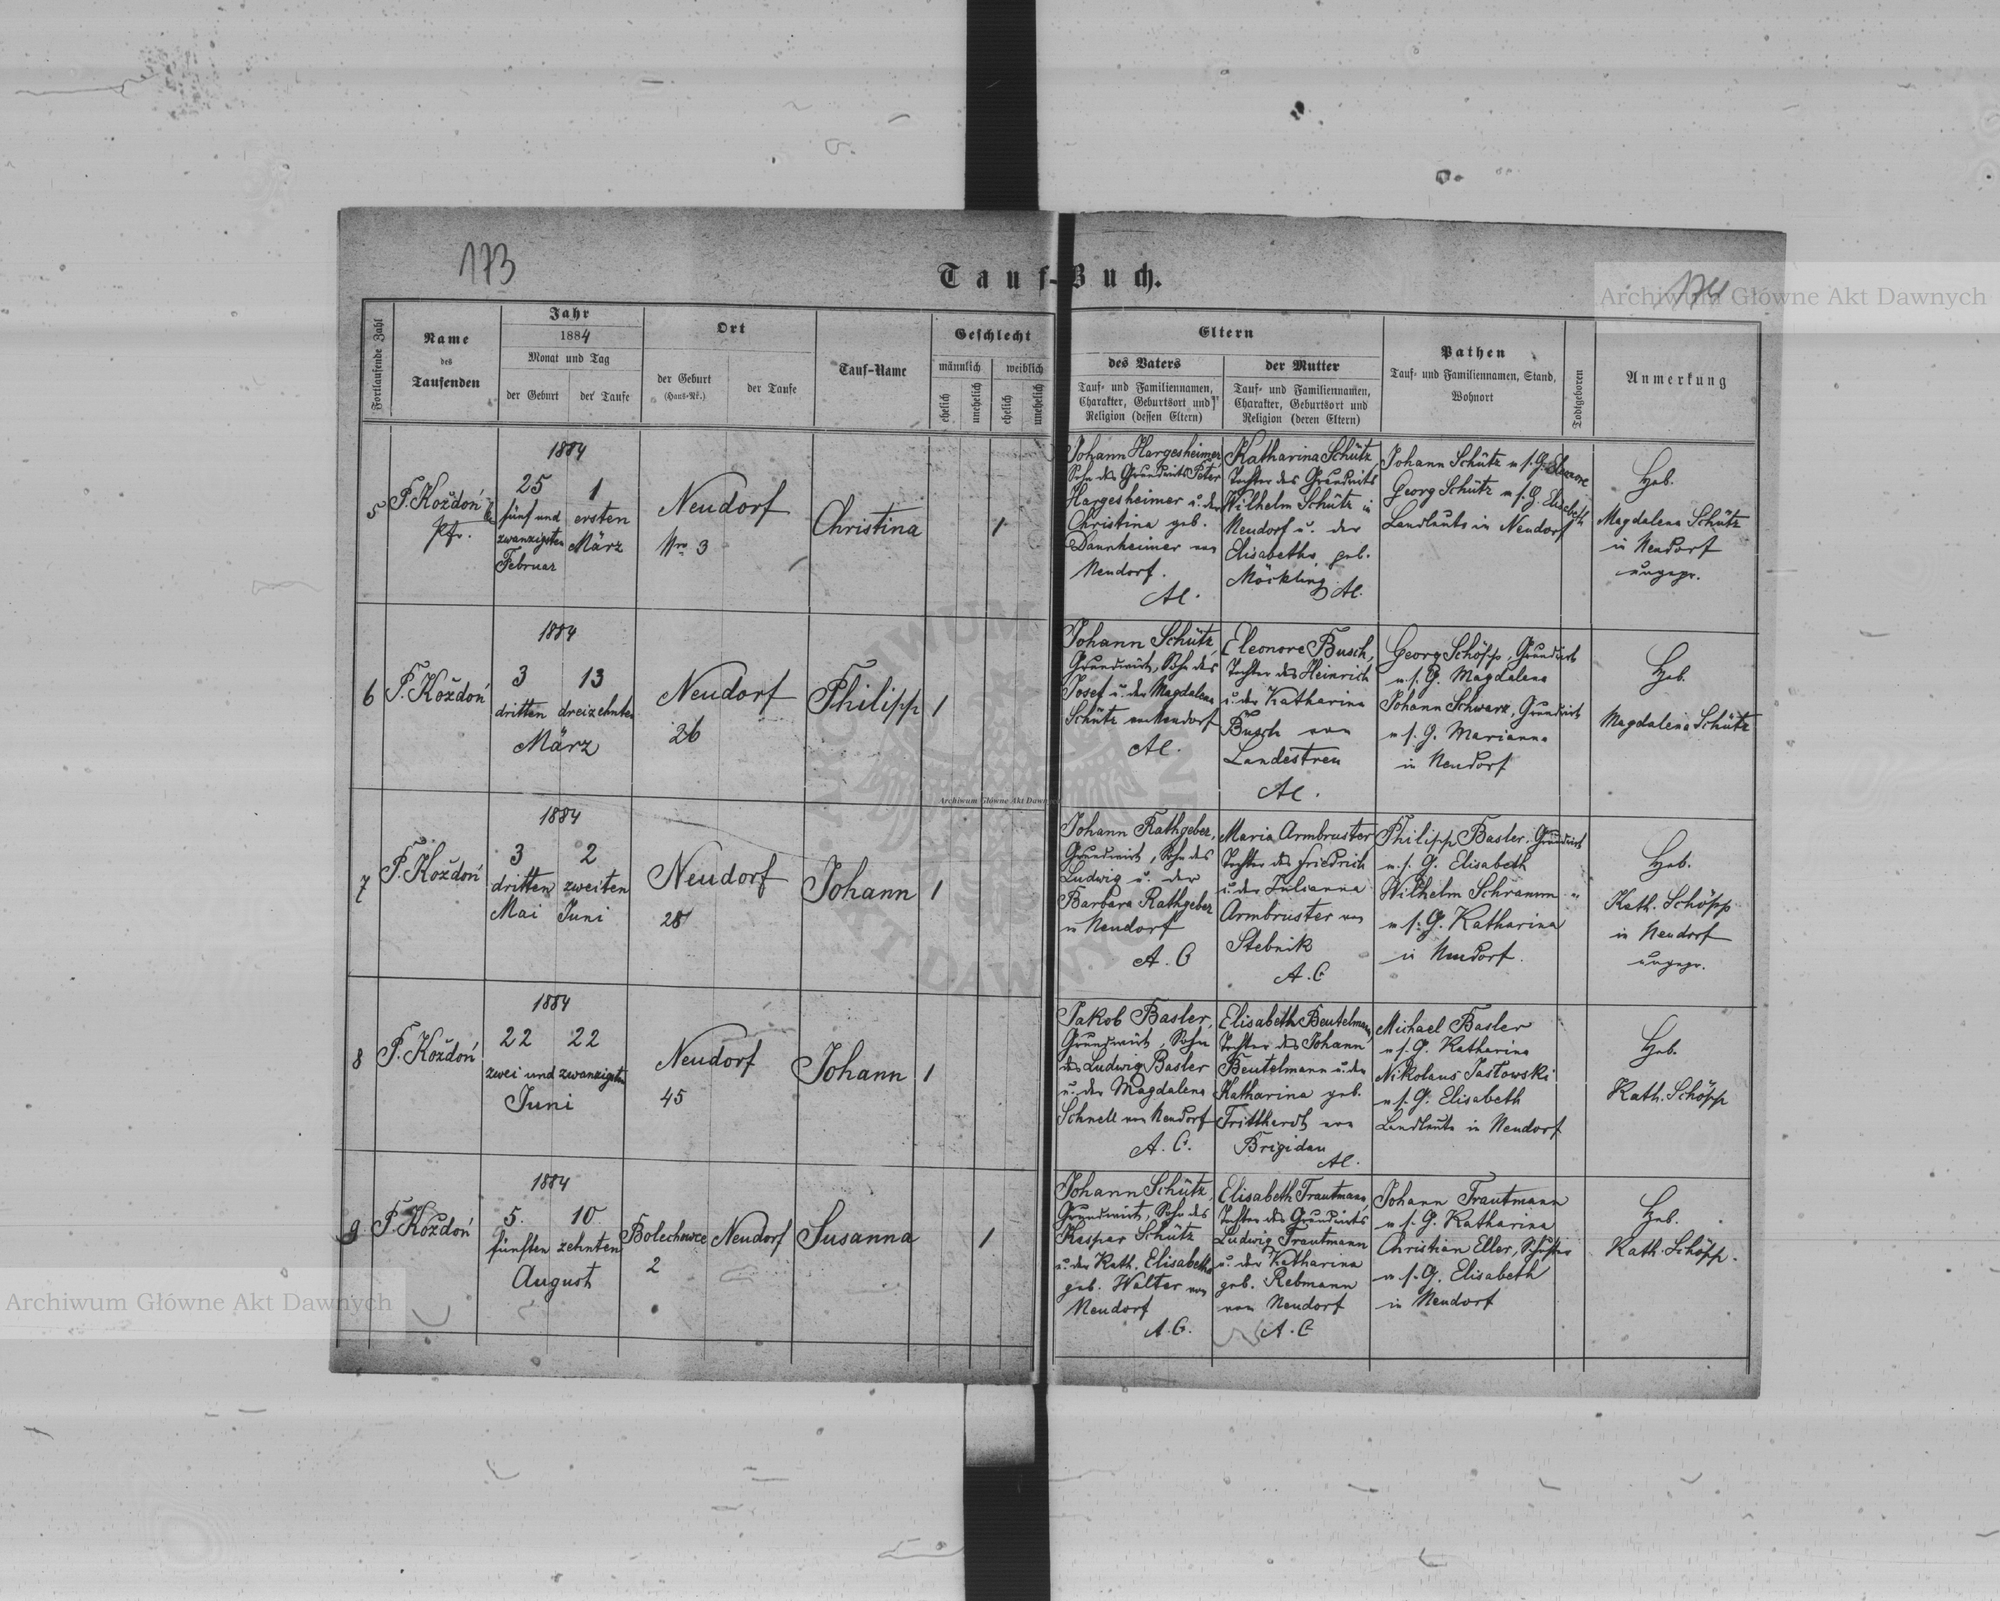 173
174
Tauf-Buch.
Archiwum Główne Akt Dawnych
Fortlaufende Zahl
Name
des
Taufenden
Jahr
1884
Monat und Tag
der Geburt
der Taufe
Ort
der Geburt
(Haus-Nr.)
der Taufe
Tauf-Name
Geschlecht
männlich
weiblich
ehelich
unehelich
ehelich
unehelich
Eltern
des Vaters
Tauf- und Familiennamen,
Charakter, Geburtsort und
Religion (dessen Eltern)
der Mutter
Tauf- und Familiennamen,
Charakter, Geburtsort und
Religion (deren Eltern)
Pathen
Tauf- und Familiennamen, Stand,
Wohnort
Todtgeboren
Anmerkung
5
P. Koždoń
Pfr.
1884
25
fünf und
zwanzigsten
Februar
1
ersten
März
Neudorf
Nro 3
Christina
1
Johann Hargesheimer
Sohn des Grundwirts Peter
Hargesheimer u. der
Christina geb.
Dannheimer von
Neudorf.
AC.
Katharina Schütz
Tochter des Grundwirts
Wilhelm Schütz in
Neudorf u. der
Elisabetha geb.
Möckling AC.
Johann Schütz u s. G. Eleonore
Georg Schütz u s. G. Elisabeth
Landleute in Neudorf
Heb.
Magdalena Schütz
in Neudorf
ungepr.
6
P. Koždoń
1884
3
dritten
13
dreizehnten
März
Neudorf
26
Philipp
1
Johann Schütz,
Grundwirt, Sohn des
Josef u. der Magdalena
Schütz von Neudorf
AC.
Eleonore Busch,
Tochter des Heinrich
u. der Katharina
Busch von
Landestreu
AC.
Georg Schöpp, Grundwirt
u. s. G. Magdalena
Johann Schwarz, Grundwirt
u s. G. Marianna
in Neudorf
Heb.
Magdalena Schütz
7
P. Koždoń
1884
3
dritten
Mai
2
zweiten
Juni
Neudorf
28
Johann
1
Johann Rathgeber,
Grundwirt, Sohn des
Ludwig u. der
Barbara Rathgeber
in Neudorf
A. C
Maria Armbruster
Tochter des Friedrich
u. der Julianna
Armbruster von
Stebnik
A. C
Philipp Basler, Grundwirt
u. s. G. Elisabeth
Wilhelm Schramm "
u s. G. Katharina
in Neudorf.
Heb.
Kath. Schöpp
in Neudorf
ungepr.
Archiwum Główne Akt Dawnych
8
P. Koždoń
1884
22
22
zwei und zwanzigsten
Juni
Neudorf
45
Johann
1
Jakob Basler,
Grundwirt, Sohn
des Ludwig Basler
u. der Magdalena
Schnell von Neudorf
A. C.
Elisabeth Beutelmann
Tochter des Johann
Beutelmann u. der
Katharina geb.
Tritthardt von
Brigidau
AC.
Michael Basler
u s. G. Katharina
Nikolaus Jastowski
u s. G. Elisabeth
Landleute in Neudorf
Heb.
Kath. Schöpp
9
P. Koždoń
1884
5.
fünften
10.
zehnten
August
Bolechowce
2
Neudorf
Susanna
1
Johann Schütz,
Grundwirt, Sohn des
Kaspar Schütz
u. der Kath. Elisabetha
geb. Walter von
Neudorf
A. C.
Elisabeth Trautmann,
Tochter des Grundwirts
Ludwig Trautmann
u. der Katharina
geb. Rebmann
von Neudorf
A. C
Johann Trautmann
u s. G. Katharina
Christian Eller, Schuster
u s. G. Elisabeth
in Neudorf
Heb.
Kath. Schöpp.
Archiwum Główne Akt Dawnych